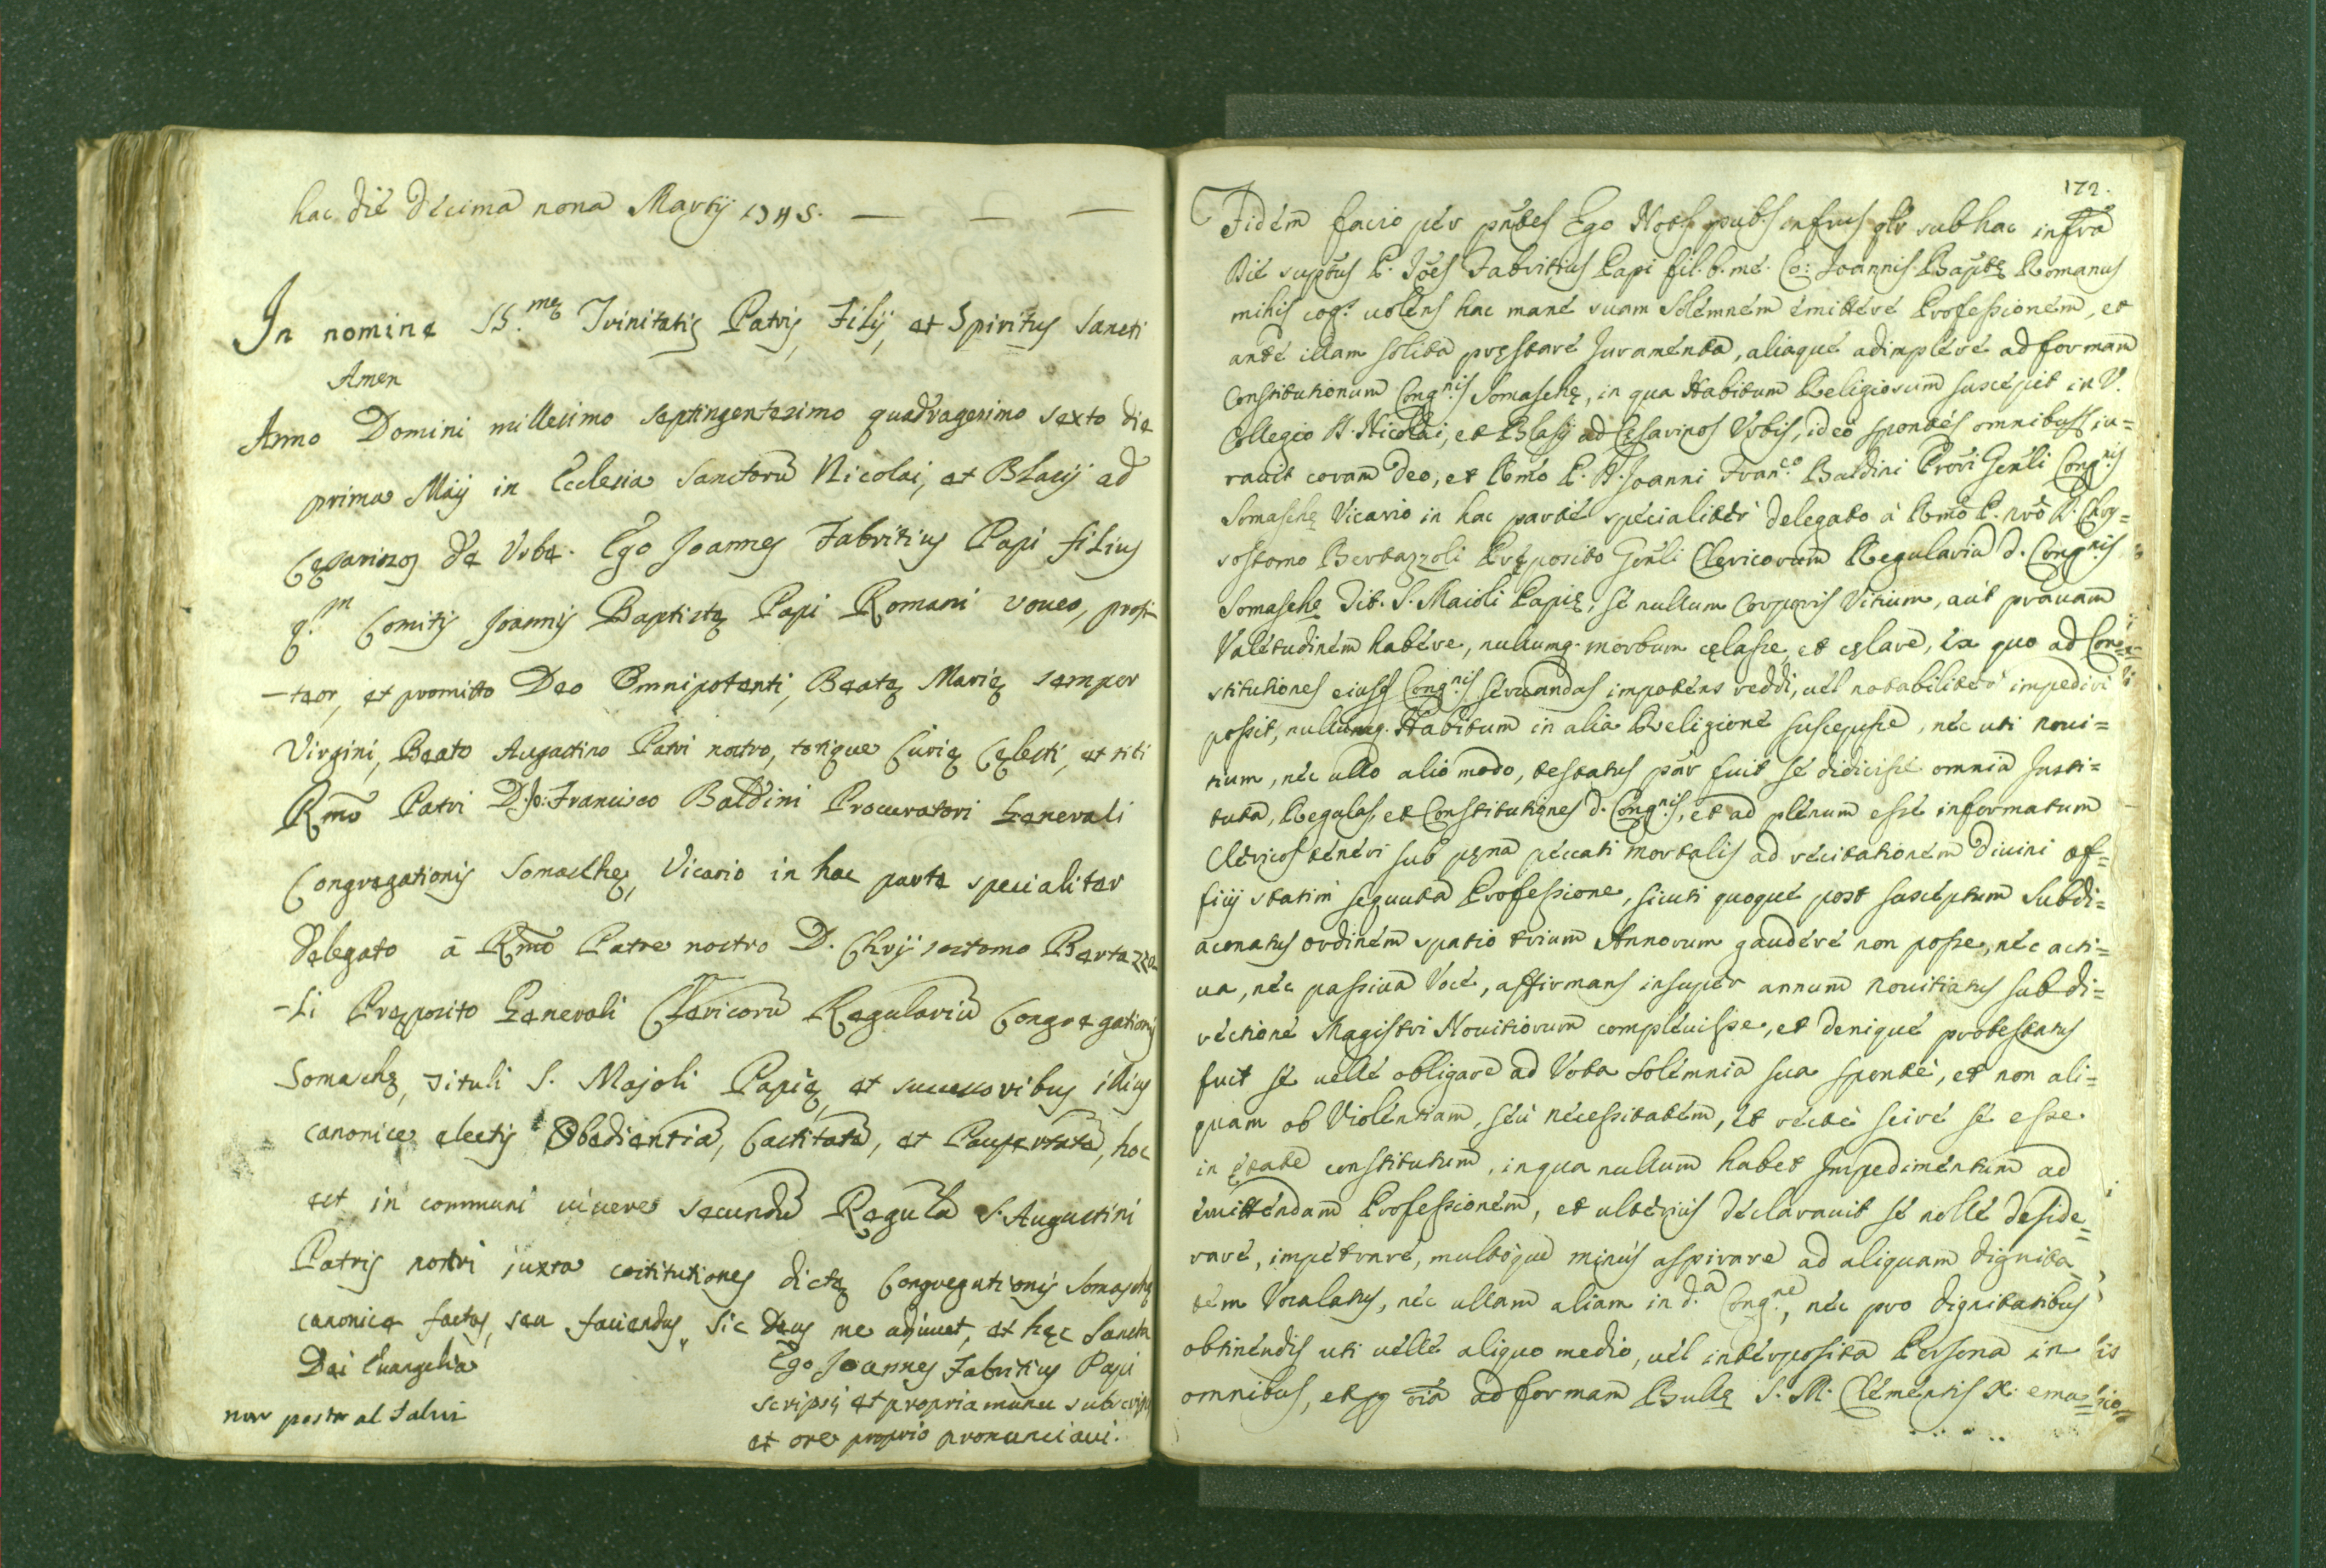 hac die decima nona Martij 1745. — — —
In nomine SS.mę Trinitatis Patris, Filij, et Spiritus Sancti
Amen
Anno Domini millesimo septingentesimo quadragesimo sexto die
prima Maij in Ecclesia Sanctorũ Nicolai, et Blasij ad
Cęsarinos de Urbe. Ego Joannes Fabritius Papi filius
q.m Comitis Joannis Baptistę Papi Romani voueo, profi-
-teor, et promitto Deo Omnipotenti, Beatę Marię semper
Virgini, Beato Augustino Patri nostro, totique Curię Cęlesti, et tibi
Rmõ Patri D. Jo: Francisco Baldini Procuratori Generali
Congregationis Somaschę, Vicario in hac parte specialiter
delegato à Rmõ Patre nostro D. Chrijsostomo Bertazzo
-li Pręposito Generali Clericorũ Regulariũ Congregationis
Somaschę, Tituli S. Majoli Papię, et successoribus illius
canonice electis Obedientiã, Castitatẽ, et Paupertatẽ, hoc
est in communi uiuere secundũ Regulã S. Augustini
Patris nostri juxta cõstitutiones dictę Congregationis Somaschę
canonice factas, seu faciendas, sic Deus me adjuuet, et hęc Sancta
Dei Euangelia
Ego Joannes Fabritius Papi
scripsi et propria manu subscripsi
et ore proprio pronunciaui.
172.
Fidem facio per pñtes Ego Nots pubs infrus qtr sub hac infra
Die supptus P. Joẽs Fabritius Papi fil. b. me. Co: Joannis Baptę Romanus
mihi cog.s uolens hac mane suam solemnem emittere Professionem, et
ante illam solita pręstare Juramenta, aliaque adimplere ad formam
Constitutionum Cong.nis Somaschę, in qua Habitum Religiosum suscepit in V.
Collegio SS. Nicolai, et Blasij ad Cęsarinos Urbis, ideò sponte omnibus iu=
rauit coram Deo, et Rmõ P. D. Joanni Fran.co Baldini Prori Genli Cong.nis
Somaschę Vicario in hac parte specialiter delegato à Rmõ P. nrõ D. Chry=
sostomo Bertazzoli Pręposito Genli Clericorum Regularium d. Cong.nis
Somaschę Tit. S. Maioli Papię, se nullum Corporis Vitium, aut prauam
Valetudinem habere, nullumq. morbum cęlasse, et cęlare, ex quo ad Con=
stitutiones eiusd Cong.nis seruandas impotens reddi, uel notabiliter impediri
possit, nullumq. Habitum in alia Religione suscepisse, nec uti noui=
tium, nec ullo alio modo, testatus par fuit se didicisse omnia Insti=
tuta, Regulas, et Constitutiones d. Cong.nis, et ad plenum esse informatum
Clericos teneri sub pęna peccati mortalis ad recitationem Diuini of=
ficij statim sequuta Professione, sicuti quoque post susceptum Subdi=
aconatus ordinem spatio trium Annorum gaudere non posse, nec acti=
ua, nec passiua Voce, affirmans insuper annum nouitiatus sub di=
rectione Magistri Nouitiorum compleuisse, et denique protestatus
fuit se uelle obligare ad Vota solemnia sua sponte, et non ali=
quam ob Violentiam, seù necessitatem, et recte scire se esse
in ętate constitutum, in qua nullum habet Impedimentum ad
emittendam Professionem, et ulterius declarauit se nolle deside=
rare, impetrare, multòque minùs aspirare ad aliquam dignita
tem Vocalatus, nec ullam aliam in d.a Cong.ne, nec pro dignitatibus
obtinendis uti uelle aliquo medio, uel interposita Persona in
omnibus, et oia ad formam Bullę S. M. Clementis X. ema=